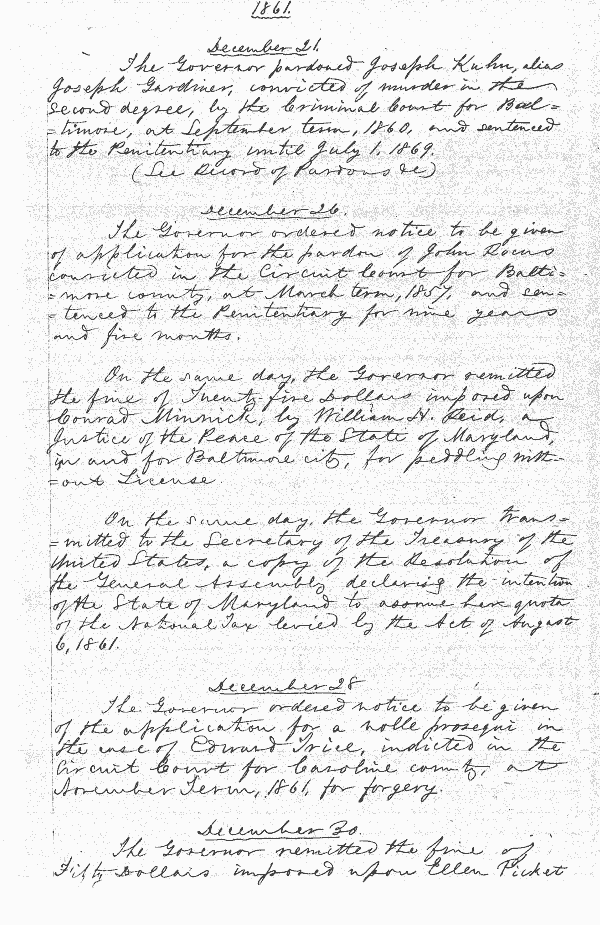 1861.
December 21.
The Governor pardoned Joseph Kuhn, alias
Joseph Gardiner, convicted of murder in the
second degree, by the Criminal Court for Bal=
=timore, at September term, 1860, and sentenced
to the Penitentiary until July 1, 1869.
(See Record of Pardons &c)
December 26.
The Governor ordered notice to be given
of application for the pardon of John
convicted in the Circuit Court for Balti=
=more county, at March term, 1857, and sen=
=tenced to the Penitentiary for nine years
and five months.
On the same day, the Governor remitted
the fine of Twenty-five Dollars imposed upon
Conrad Minnick, by William H. Reid, a
Justice of the Peace of the State of Maryland,
in and for Baltimore city, for peddling with=
=out License.
On the same day, the Governor trans=
=mitted to the Secretary of the Treasury of the
United States, a copy of the Resolution of
the General Assembly declaring the intention
of the State of Maryland to assume her quota
of the National Tax levied by the Act of August
6, 1861.
December 28
The Governor ordered notice to be given
of the application for a nolle prosequi in
the case of Edward Trice, indicted in the
Circuit Court for Caroline county, at
November Term, 1861, for forgery.
December 30.
The Governor remitted the fine of
Fifty Dollars imposed upon Ellen Picket